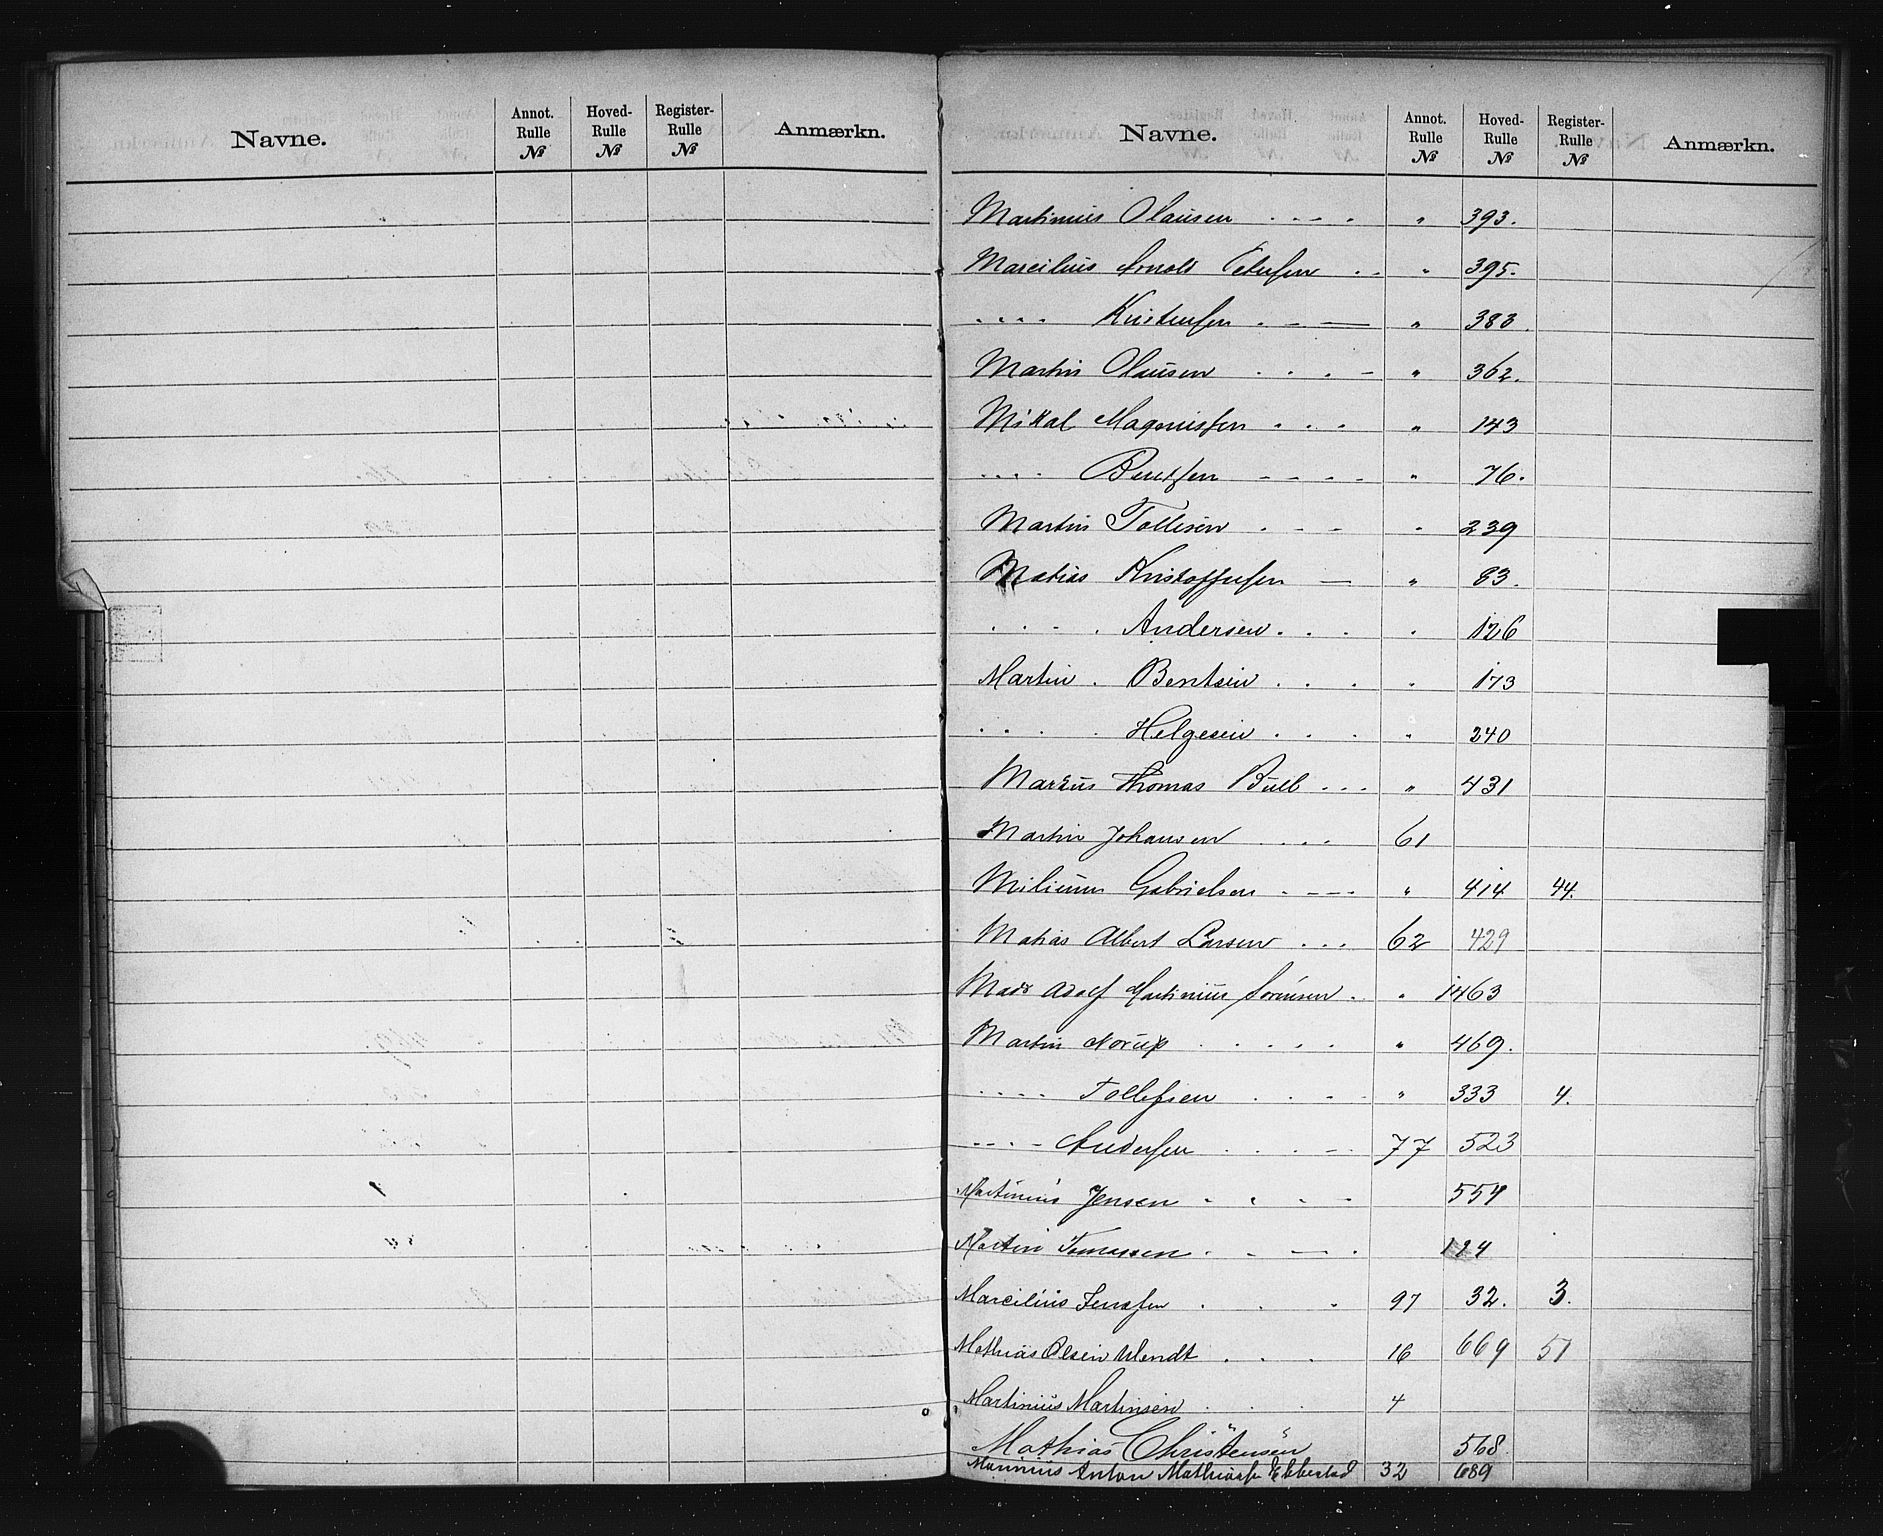 Navne. Annot. Rulle № Hoved-Rulle № Register-Rulle № Anmærkn.
Navne. Annot. Rulle № Hoved-Rulle № Register-Rulle № Anmærkn.
Martinius Olausen . - - . " 393.
Marcilius Arnold Petersen . . " 395.
. . . . Kristensen . - — " 383.
Martin Olausen . . . - " 362.
Mikal Magnussen . . . " 143
. . . . Bentsen - - - . " 76.
Martin Tollisen . - - " 239
Matias Kristoffersen — " 83.
. . . . Andersen . . . " 126
Martin . Bentsen . . . " 173
. . . . Helgesen . . . " 240
Markus Thomas Bull . . . " 431
Martin Johansen . . . . 61
Milium Gabrielsen . - - - " 414 44.
Matias Albert Larsen . . . 62 429
Mads Adolf Martinius Sørensen . " 463
Martin Norup . . . . . " 469.
. . . . Tollefsen . . . . " 333 4.
- - . - Andersen . . . - 77 523
Martinius Jensen - . . - 554
Martin Tomassen . . - - . 194
Marcilius Jensen . . . 97 32. 3.
Mathias Olsen Wendt . . . 16 669 51
Martinius Martinsen . . . 4
Mathias Christensen 568
Marinius Anton Mathias 32 689